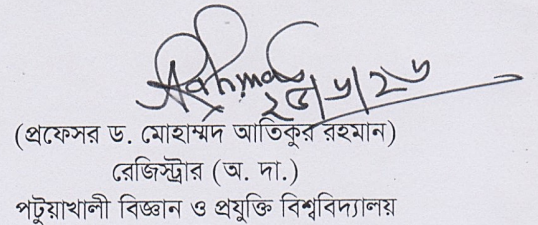 Rahman
২৫/৬/২৬
(প্রফেসর ড. মোহাম্মদ আতিকুর রহমান)
রেজিস্ট্রার (অ. দা.)
পটুয়াখালী বিজ্ঞান ও প্রযুক্তি বিশ্ববিদ্যালয়